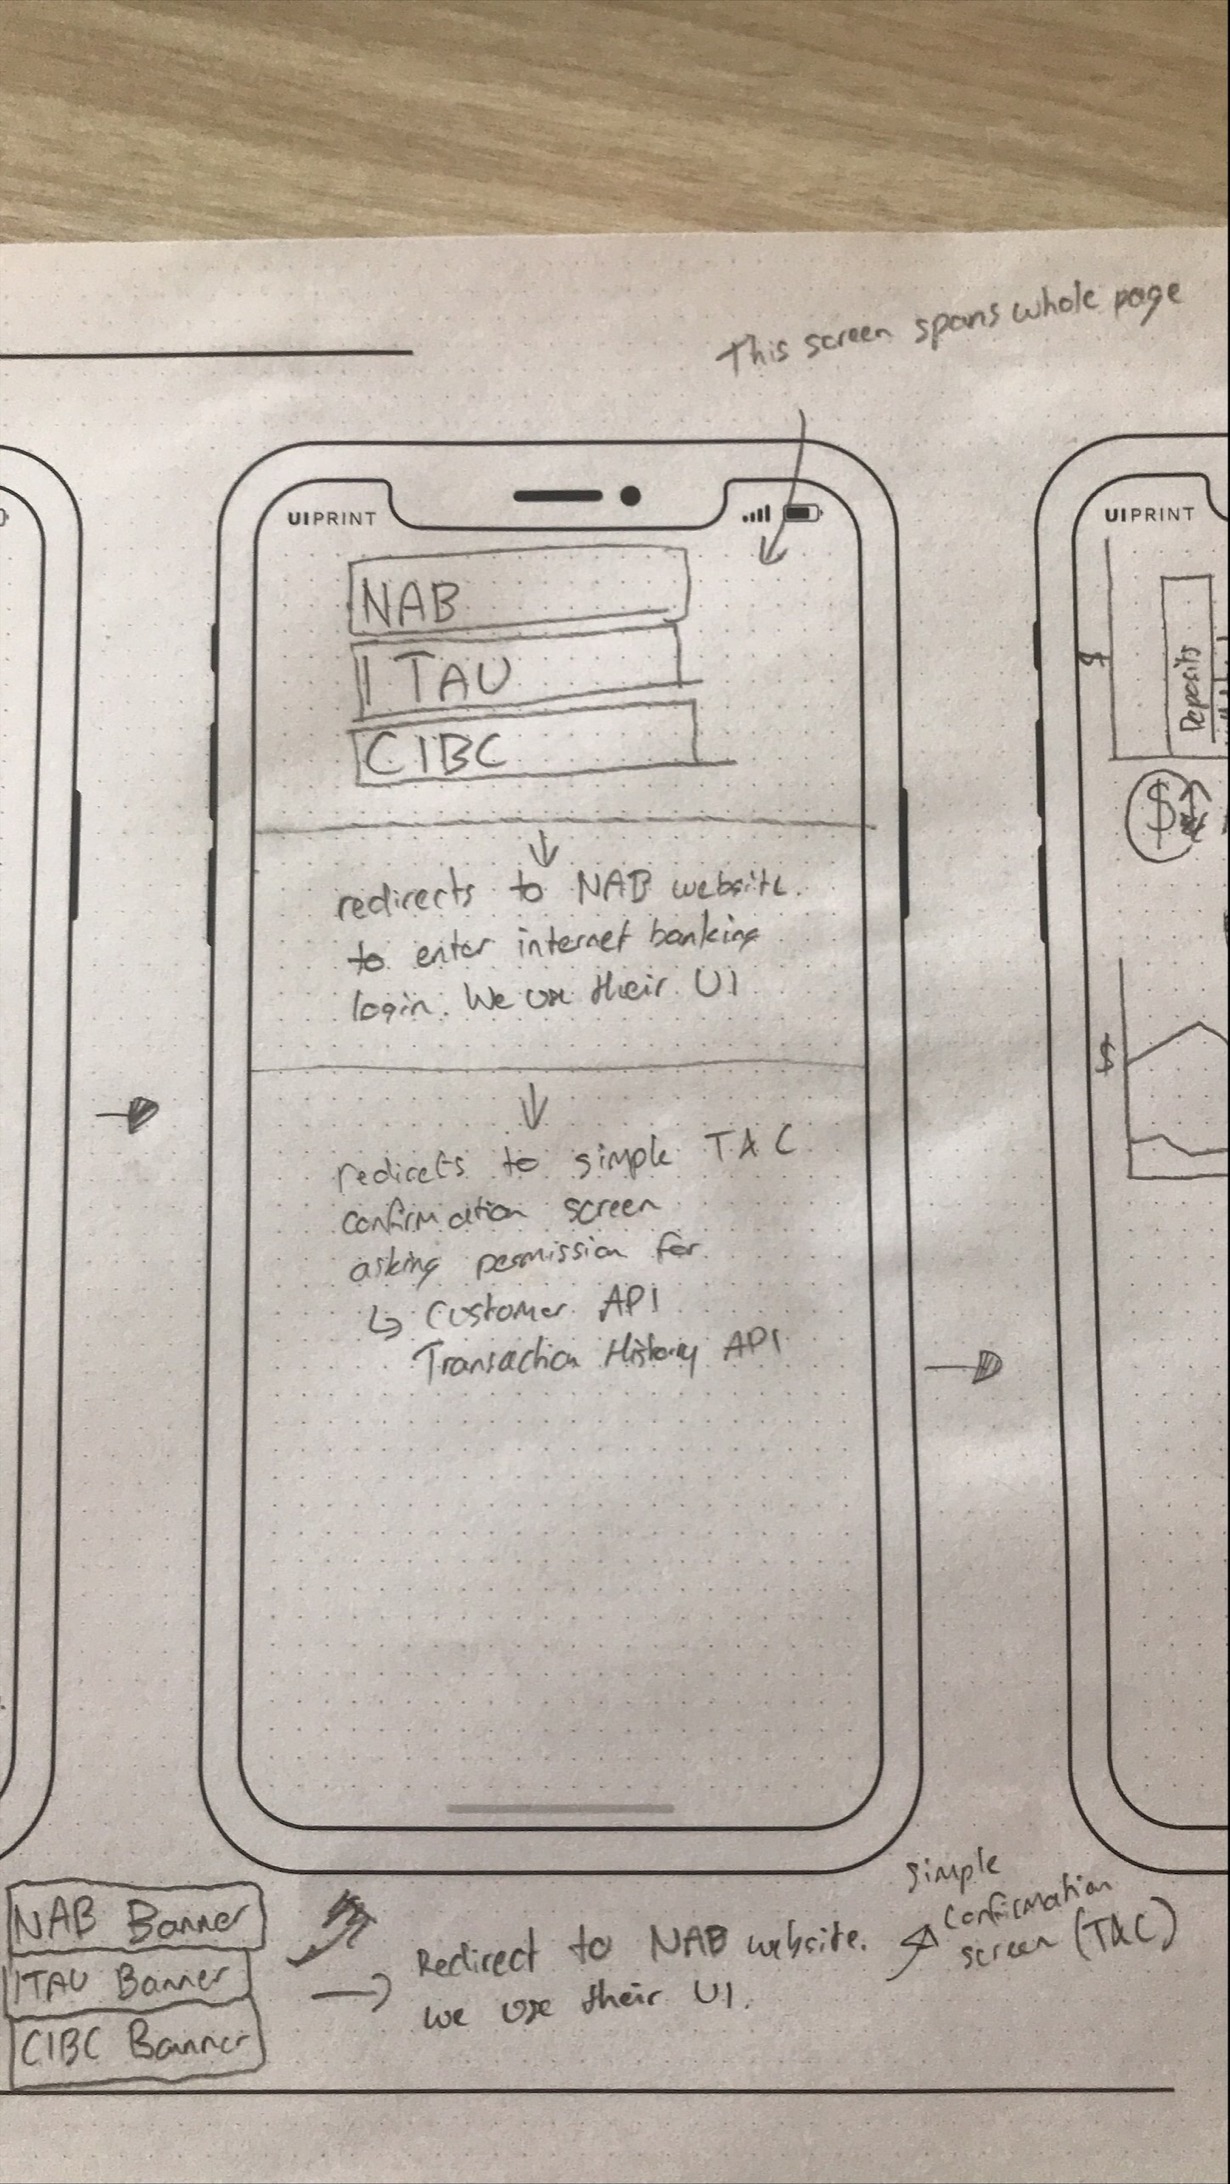 This screen spans whole page
UIPRINT
NAB
ITAU
CIBC
redirects to NAB website.
to enter internet banking
login. We use their UI
redirects to simple T&C
confirmation screen
asking permission for
↳ Customer API
Transaction History API
UIPRINT
$
Deposits
$
$
NAB Banner
ITAU Banner
CIBC Banner
Redirect to NAB website.
we use their UI.
Simple
Confirmation
screen (T&C)